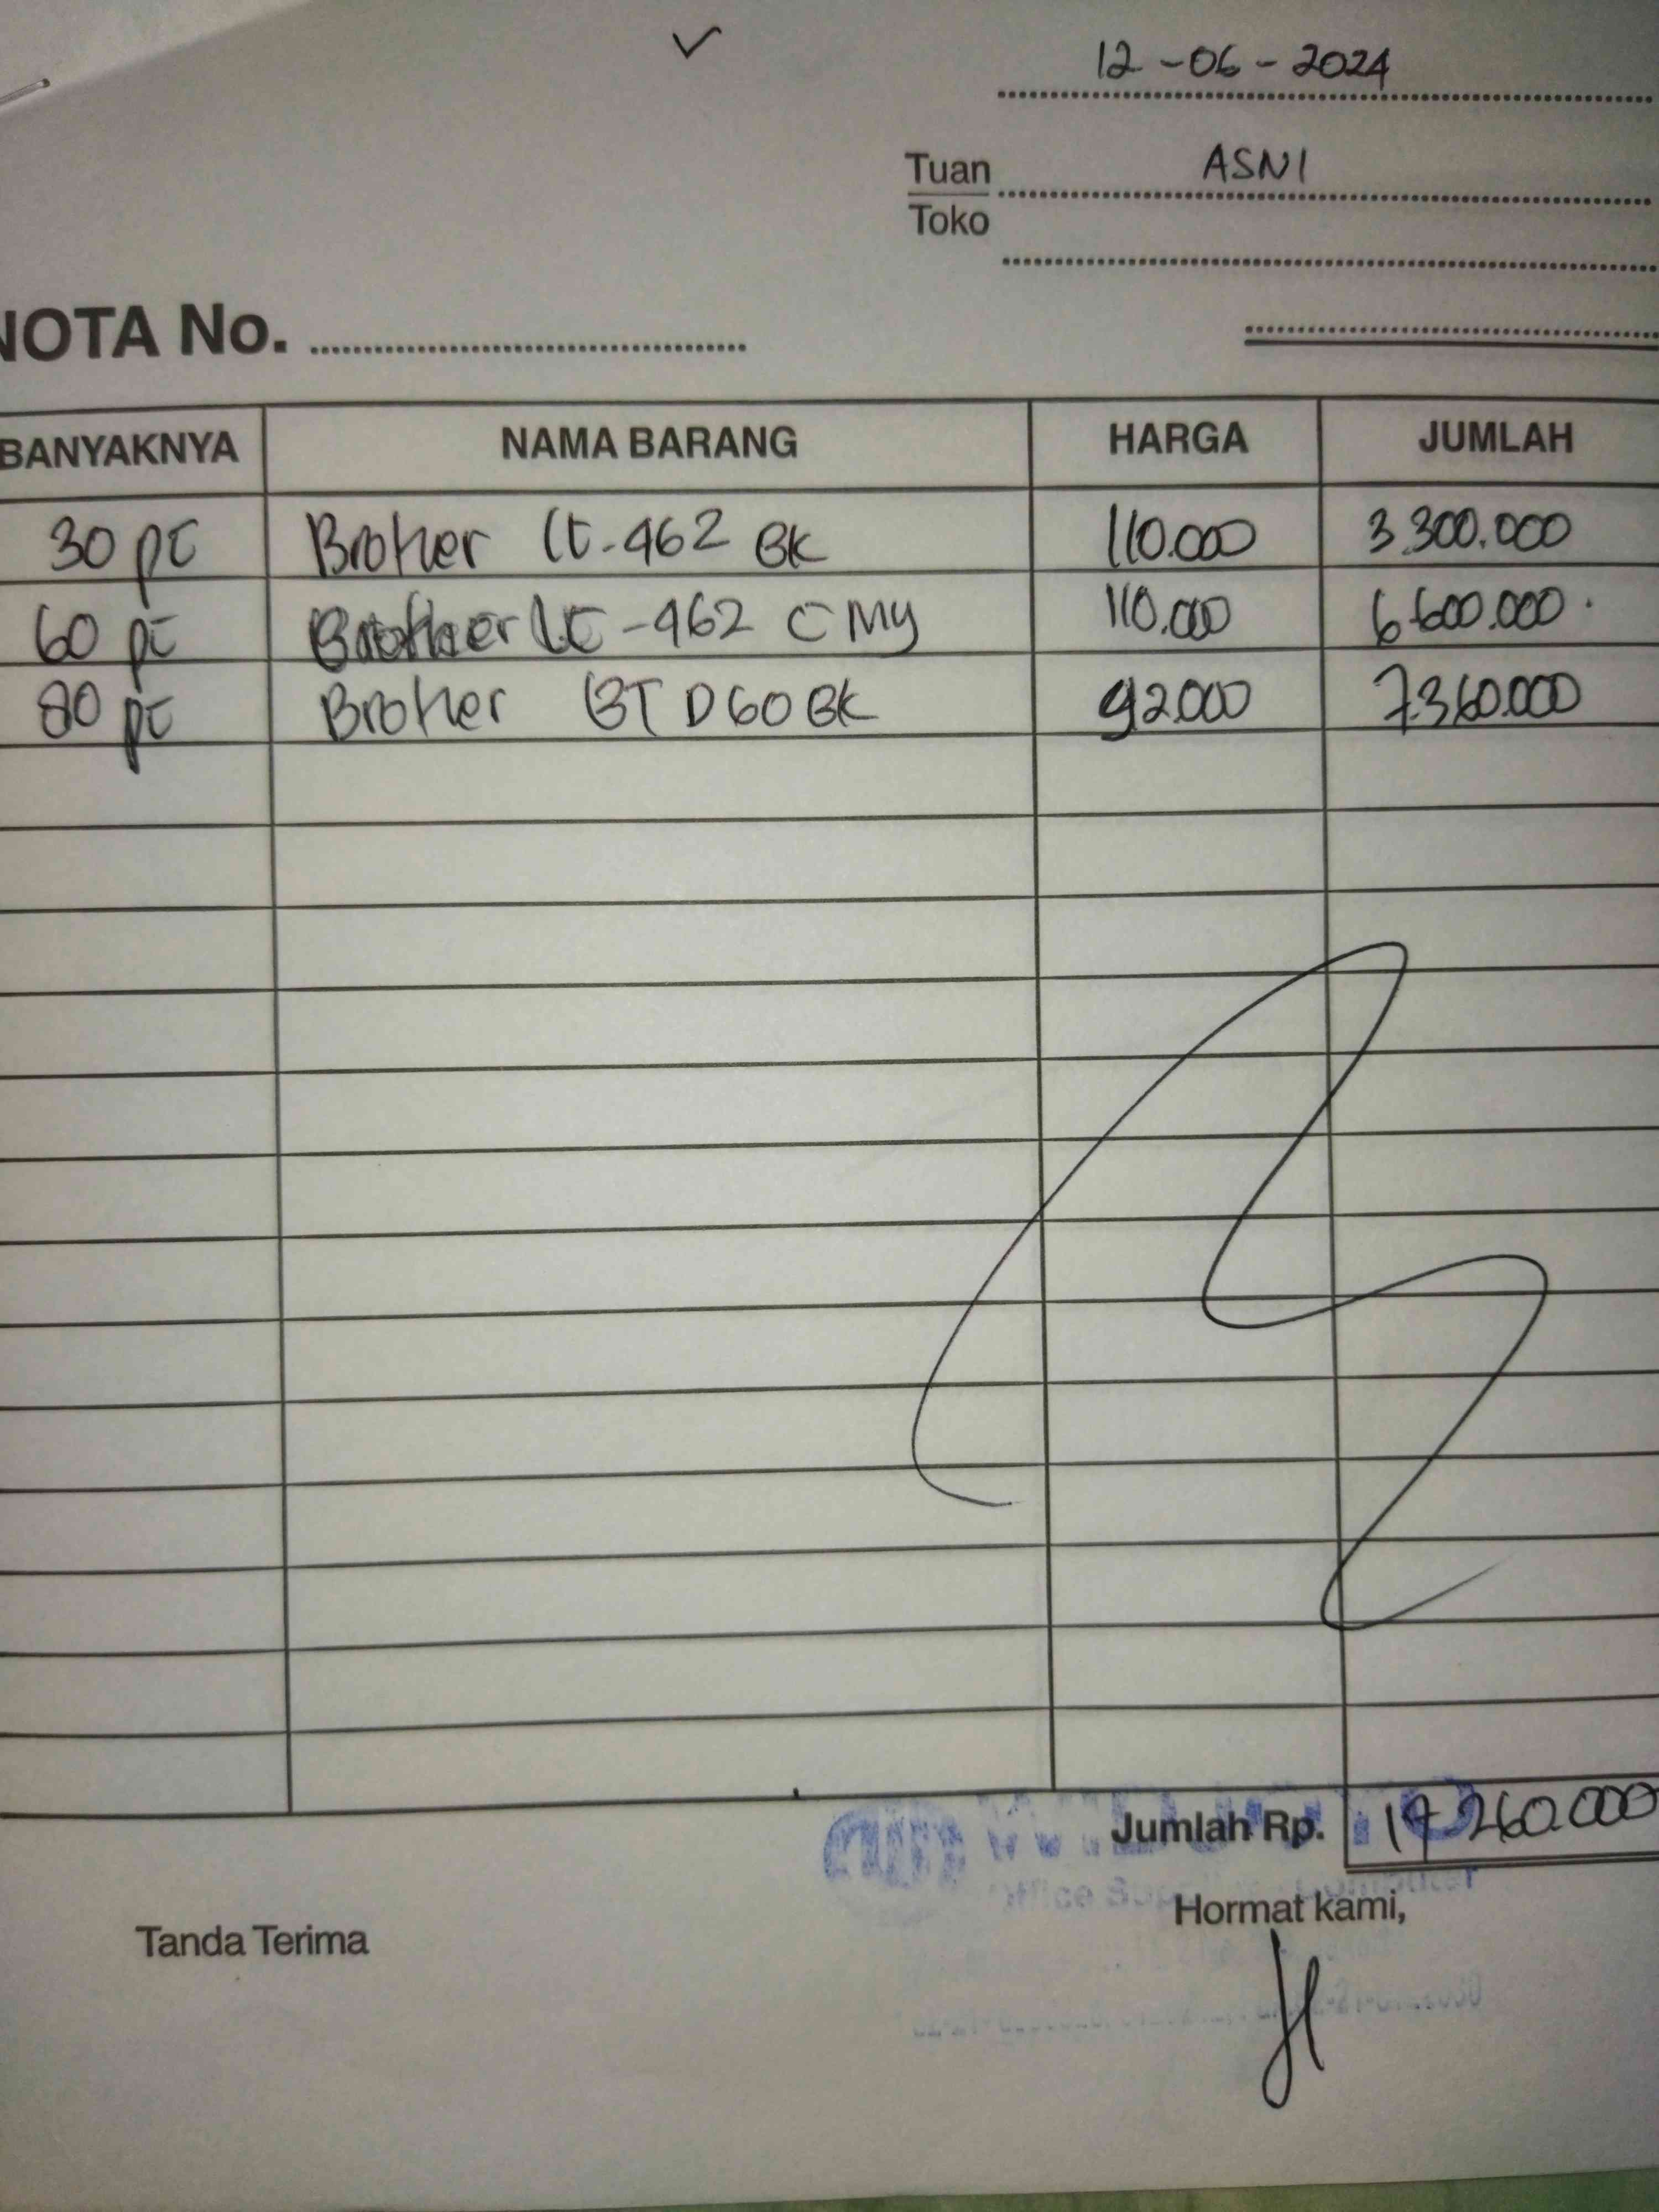 12-06-2024
Tuan ASNI
Toko
NOTA No.
BANYAKNYA NAMA BARANG HARGA JUMLAH
30 pc Brother LC-462 BK 110.000 3.300.000
60 pc Brother LC-462 CMY 110.000 6.600.000
80 pc Brother BT D60 BK 92.000 7.360.000
Jumlah Rp. 17.260.000
Office Computer
Tanda Terima Hormat kami,